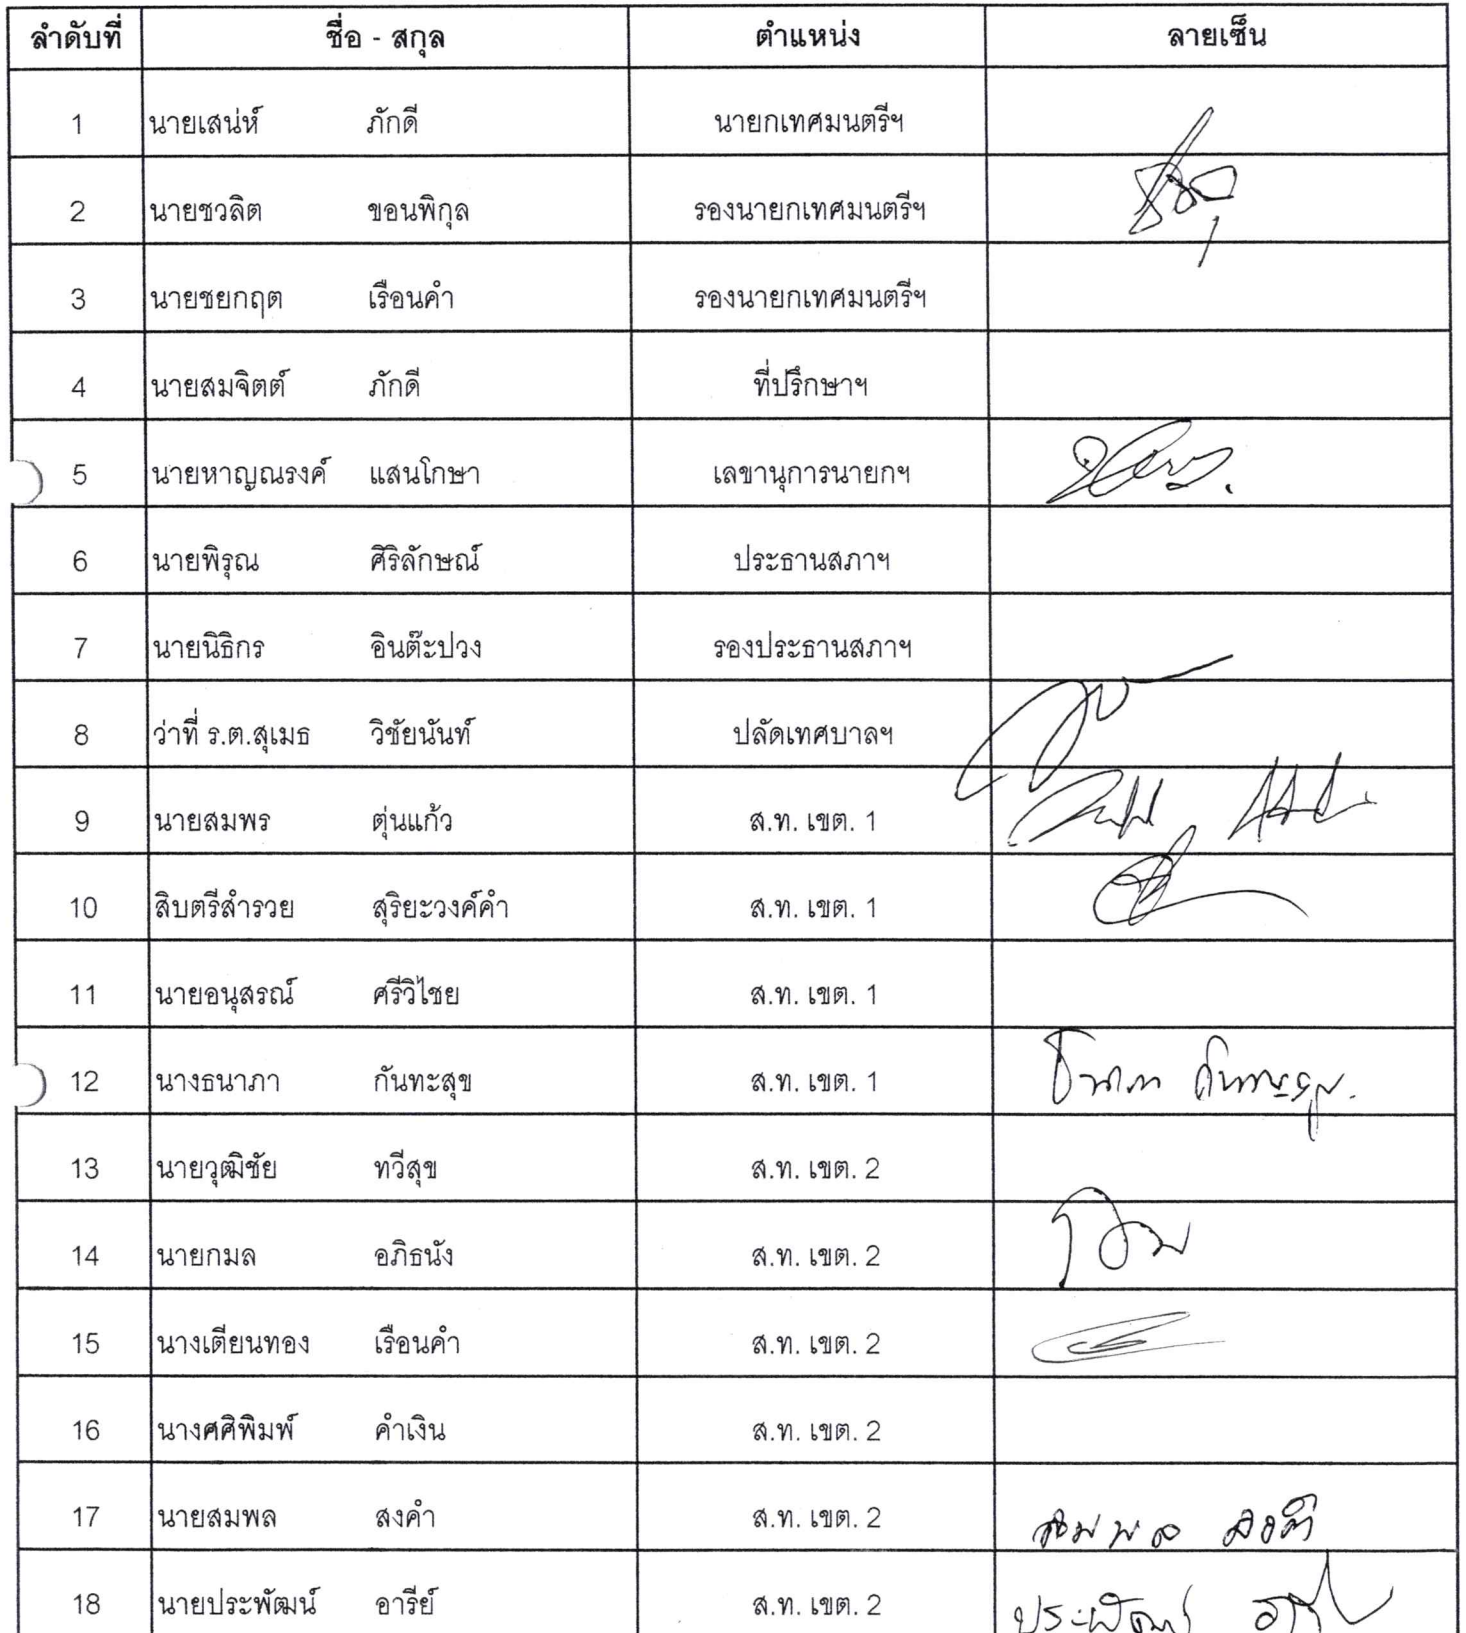 ลำดับที่ ชื่อ - สกุล ตำแหน่ง ลายเซ็น
1 นายเสน่ห์ ภักดี นายกเทศมนตรีฯ
2 นายชวลิต ขอนพิกุล รองนายกเทศมนตรีฯ
3 นายชยกฤต เรือนคำ รองนายกเทศมนตรีฯ
4 นายสมจิตต์ ภักดี ที่ปรึกษาฯ
5 นายหาญณรงค์ แสนโกษา เลขานุการนายกฯ
6 นายพิรุณ ศิริลักษณ์ ประธานสภาฯ
7 นายนิธิกร อินต๊ะปวง รองประธานสภาฯ
8 ว่าที่ ร.ต.สุเมธ วิชัยนันท์ ปลัดเทศบาลฯ
9 นายสมพร ตุ่นแก้ว ส.ท. เขต. 1
10 สิบตรีสำรวย สุริยะวงค์คำ ส.ท. เขต. 1
11 นายอนุสรณ์ ศรีวิไชย ส.ท. เขต. 1
12 นางธนาภา กันทะสุข ส.ท. เขต. 1 ธนาภา กันทะสุข
13 นายวุฒิชัย ทวีสุข ส.ท. เขต. 2
14 นายกมล อภิธนัง ส.ท. เขต. 2
15 นางเตียนทอง เรือนคำ ส.ท. เขต. 2
16 นางศศิพิมพ์ คำเงิน ส.ท. เขต. 2
17 นายสมพล สงคำ ส.ท. เขต. 2 สมพล สงคำ
18 นายประพัฒน์ อารีย์ ส.ท. เขต. 2 ประพัฒน์